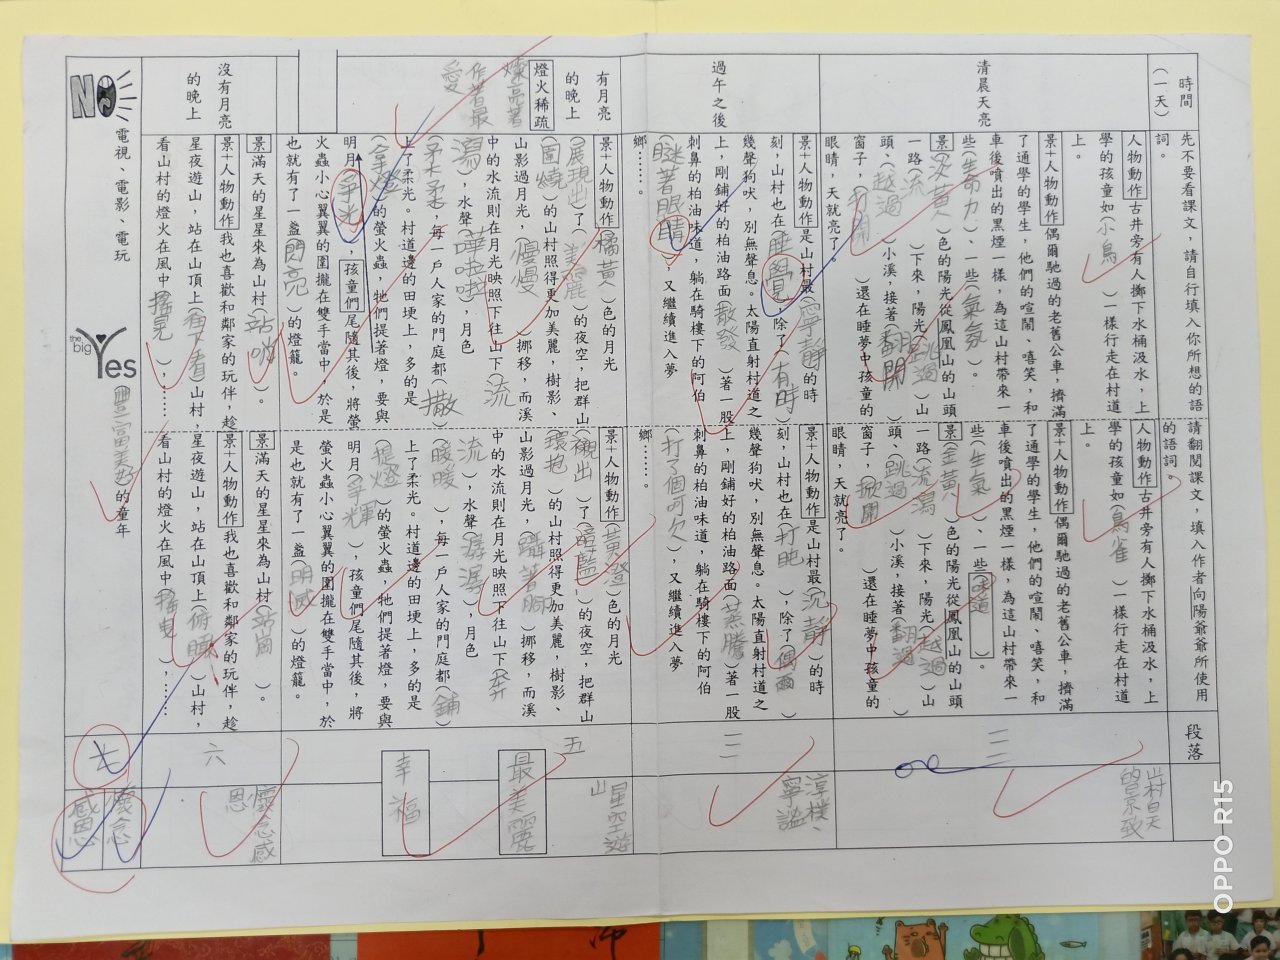 時間
（一天）
先不要看課文，請自行填入你所想的語
詞。
請翻閱課文，填入作者向陽爺爺所使用
的語詞。
段落
清晨天亮
人物動作 古井旁有人擲下水桶汲水，上
學的孩童如（小鳥）一樣行走在村道
上。
景+人物動作 偶爾馳過的老舊公車，擠滿
了通學的學生，他們的喧鬧、嘻笑，和
車後噴出的黑煙一樣，為這山村帶來一
些（生命力）、一些（氣氛）。
景（淡黃）色的陽光從鳳凰山的山頭
一路（流）下來，陽光（跳過）山
頭，（越過）小溪，接著（翻開）
窗子，（打開）還在睡夢中孩童的
眼睛，天就亮了。
人物動作 古井旁有人擲下水桶汲水，上
學的孩童如（鳥雀）一樣行走在村道
上。
景+人物動作 偶爾馳過的老舊公車，擠滿
了通學的學生，他們的喧鬧、嘻笑，和
車後噴出的黑煙一樣，為這山村帶來一
些（生氣）、一些（味道）。
景（金黃）色的陽光從鳳凰山的山頭
一路（流瀉）下來，陽光（越過）山
頭、（跳過）小溪，接著（翻過）
窗子，（掀開）還在睡夢中孩童的
眼睛，天就亮了。
山村早天
的景致
過午之後
景+人物動作 是山村最（寧靜）的時
刻，山村也在（睡覺），除了（有時）
幾聲狗吠，別無聲息。太陽直射村道之
上，剛鋪好的柏油路面（散發）著一股
刺鼻的柏油味道，躺在騎樓下的阿伯
（瞇著眼睛），又繼續進入夢
鄉……。
景+人物動作 是山村最（沉靜）的時
刻，山村也在（打盹），除了（偶爾）
幾聲狗吠，別無聲息。太陽直射村道之
上，剛鋪好的柏油路面（蒸騰）著一股
刺鼻的柏油味道，躺在騎樓下的阿伯
（打了個呵欠），又繼續進入夢
鄉……。
淳樸、
寧謐
有月亮
的晚上
燈火稀疏
燦亮著
作者最
愛
景+人物動作（橘黃）色的月光
（展現出）了（美麗）的夜空，把群山
（圍繞）的山村照得更加美麗，樹影、
山影過月光，（慢慢）挪移，而溪
中的水流則在月光映照下往山下（流
瀉），水聲（嘩啦啦），月色
（柔柔），每一戶人家的門庭都（撒）
上了柔光。村道邊的田埂上，多的是
（拿燈）的螢火蟲，牠們提著燈，要與
明月（爭光），孩童們尾隨其後，將螢
火蟲小心翼翼的圍攏在雙手當中，於是
也就有了一盞（閃亮）的燈籠。
景+人物動作（黃澄）色的月光
（襯出）了（暗藍）的夜空，把群山
（環抱）的山村照得更加美麗，樹影、
山影過月光，（躡著腳）挪移，而溪
中的水流則在月光映照下往山下（奔
流），水聲（潺潺），月色
（曖曖），每一戶人家的門庭都（鋪）
上了柔光。村道邊的田埂上，多的是
（提燈）的螢火蟲，牠們提著燈，要與
明月（爭輝），孩童們尾隨其後，將
螢火蟲小心翼翼的圍攏在雙手當中，於
是也就有了一盞（明滅）的燈籠。
五
星空遊
山
最美麗
幸福
沒有月亮
的晚上
景 滿天的星星來為山村（站哨）。
景+人物動作 我也喜歡和鄰家的玩伴，趁
星夜遊山，站在山頂上（往下看）山村，
看山村的燈火在風中（搖晃），……
景 滿天的星星來為山村（站崗）。
景+人物動作 我也喜歡和鄰家的玩伴，趁
星夜遊山，站在山頂上（俯瞰）山村，
看山村的燈火在風中（搖曳），……
六
懷念感
恩
NO
電視、電影、電玩
the big Yes
豐富美好的童年
七
懷念
感恩
OPPO R15